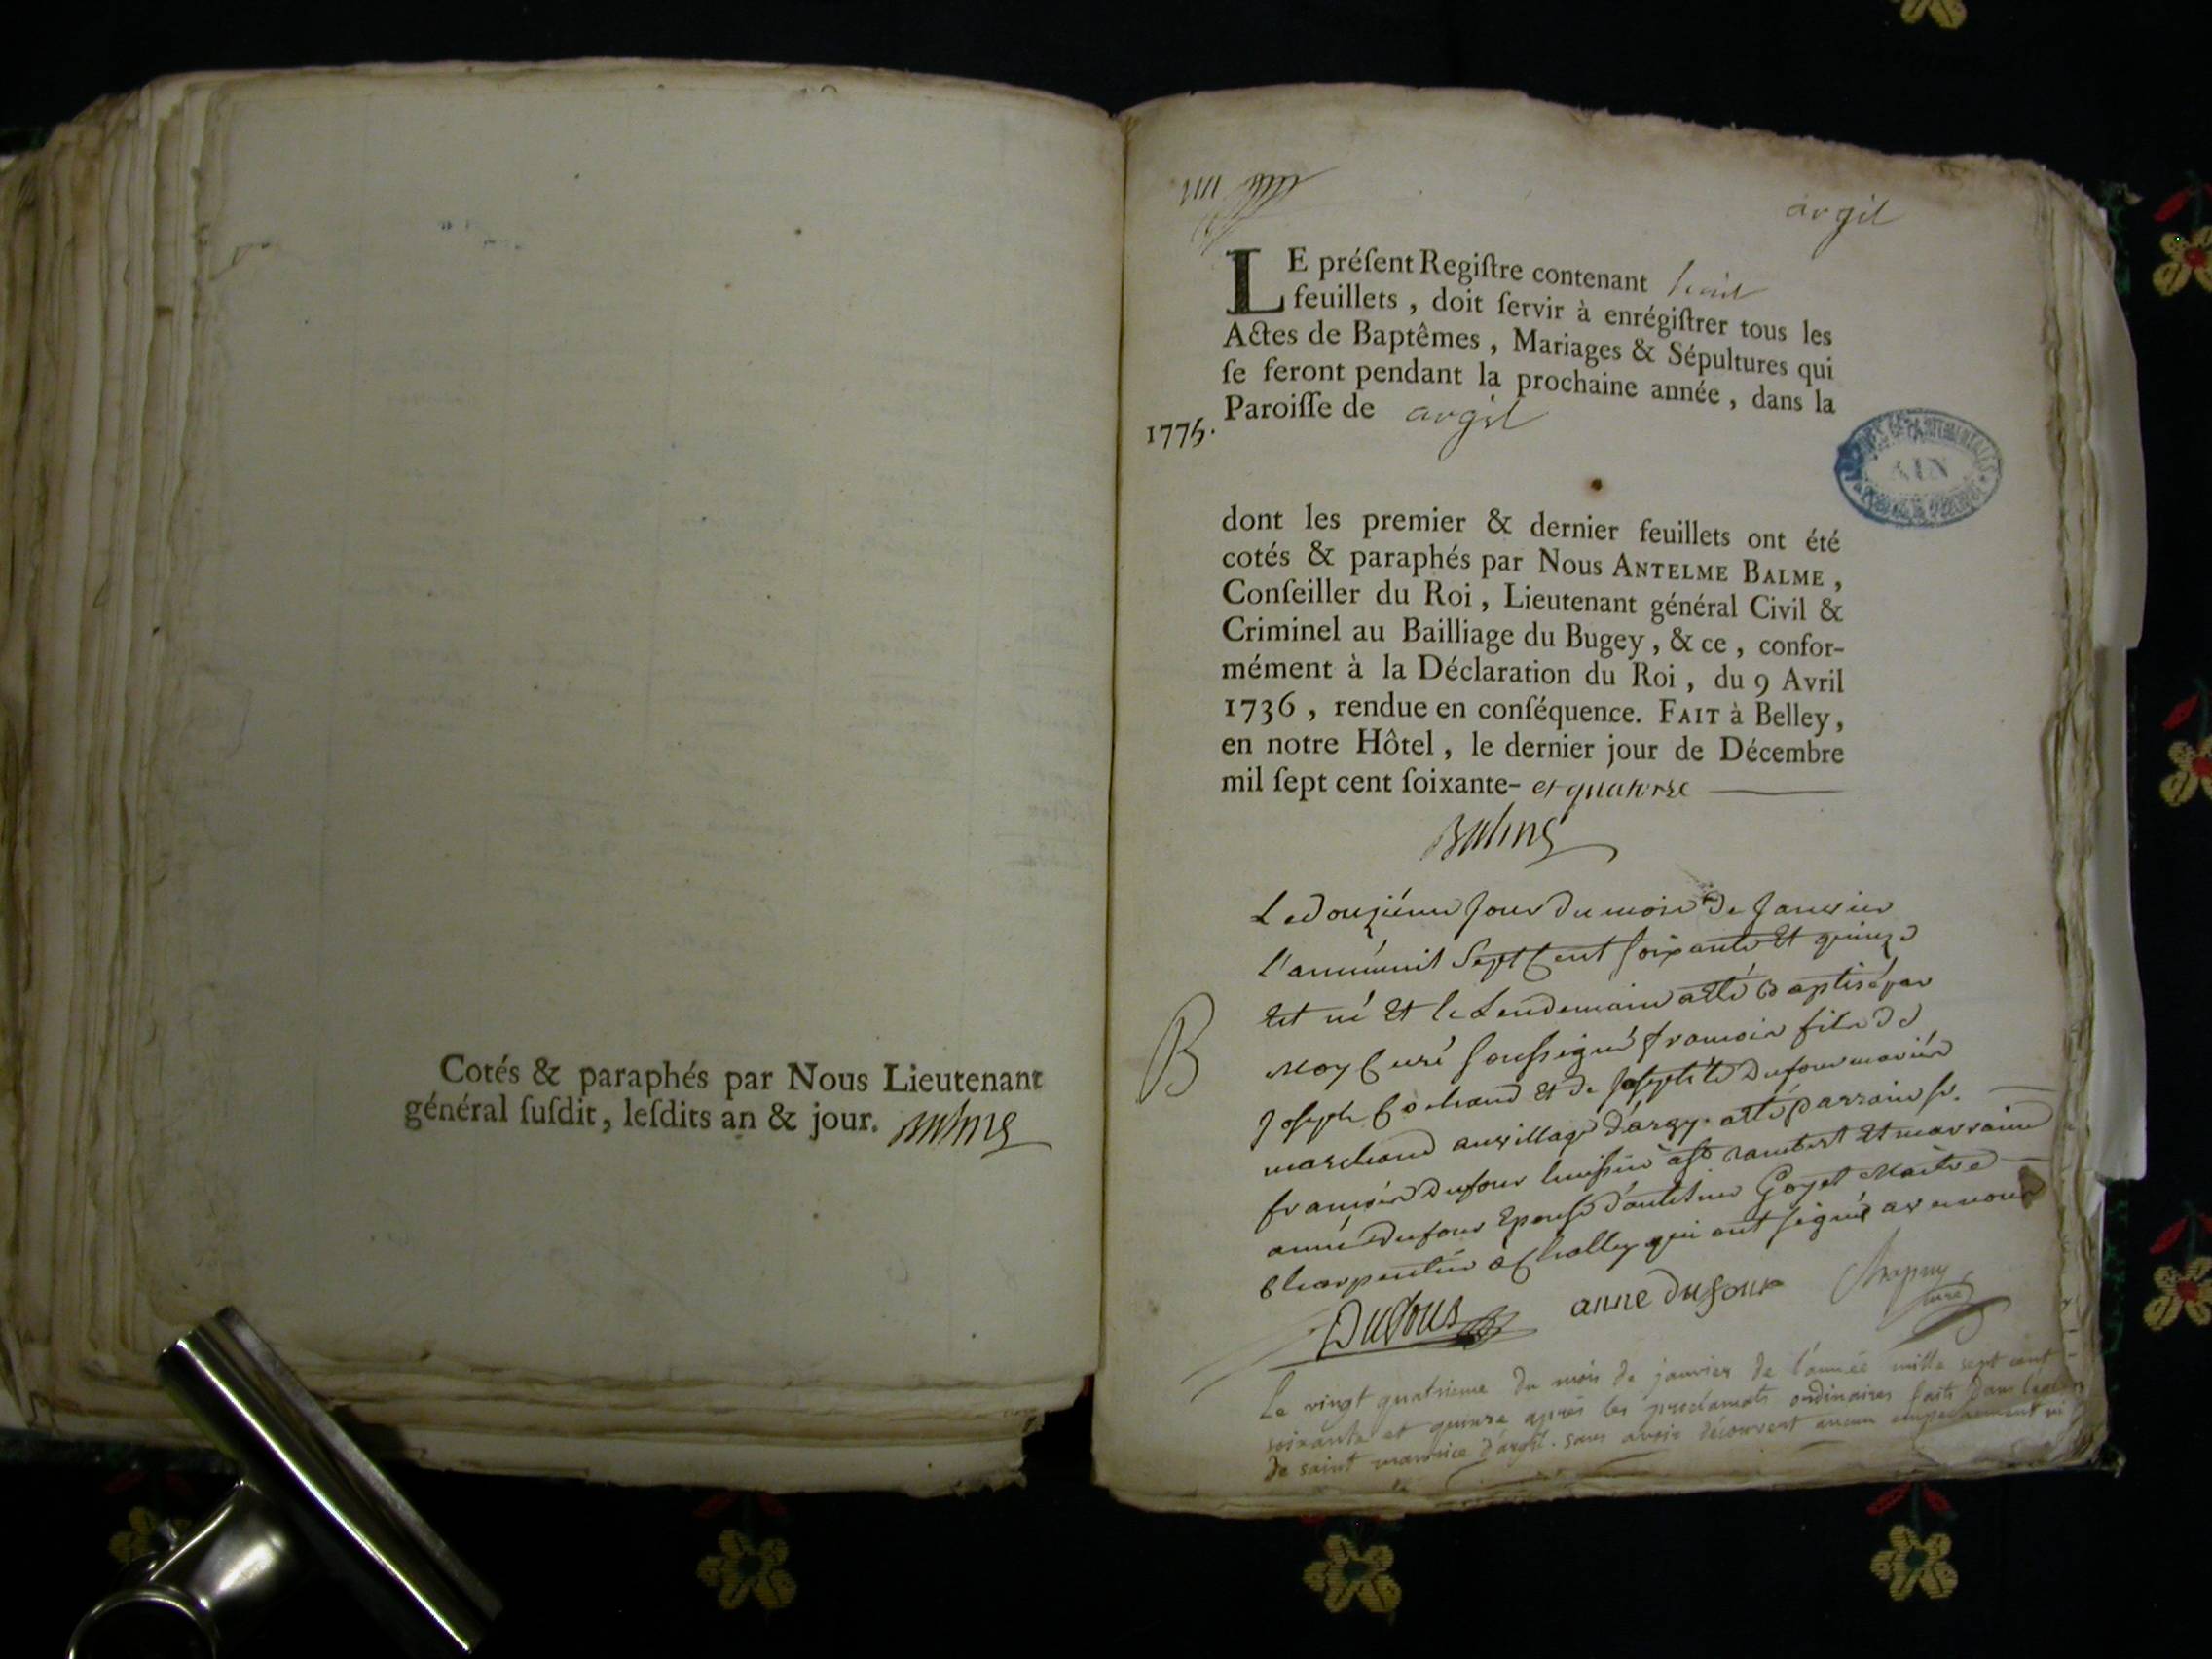 Cotés & paraphés par Nous Lieutenant
général ſuſdit, leſdits an & jour. Balme
argil
LE préſent Regiſtre contenant huit
feuillets, doit ſervir à enrégiſtrer tous les
Actes de Baptêmes, Mariages & Sépultures qui
ſe feront pendant la prochaine année, dans la
Paroiſſe de argil
1775.
dont les premier & dernier feuillets ont été
cotés & paraphés par Nous ANTELME BALME,
Conſeiller du Roi, Lieutenant général Civil &
Criminel au Bailliage du Bugey, & ce, confor-
mément à la Déclaration du Roi, du 9 Avril
1736, rendue en conſéquence. FAIT à Belley,
en notre Hôtel, le dernier jour de Décembre
mil ſept cent ſoixante- et quatorze
Balme
Le douziéme Jour du mois de Janvier
l'année mil Sept Cent Soixante Et quinze
Est né Et le Lendemain a été Baptisé par
B
Moy Curé Soussigné françois fils de
Joseph Cochand Et de Josephte Dufour mariés
marchand au village d'argy. a été parrain sr.
françois Dufour huissier a st rambert Et marraine
anne Dufour Epouse d'antelme Goyet Maitre
Charpentier a Challey qui ont signé avec nous
Dufour anne Dufour Chapuy
curé
Le vingt quatrieme du mois de janvier de l'année mille sept cent
soixante et quinze après les proclamats ordinaires faits dans
de saint maurice d'argil. sans avoir découvert aucun empechement ni